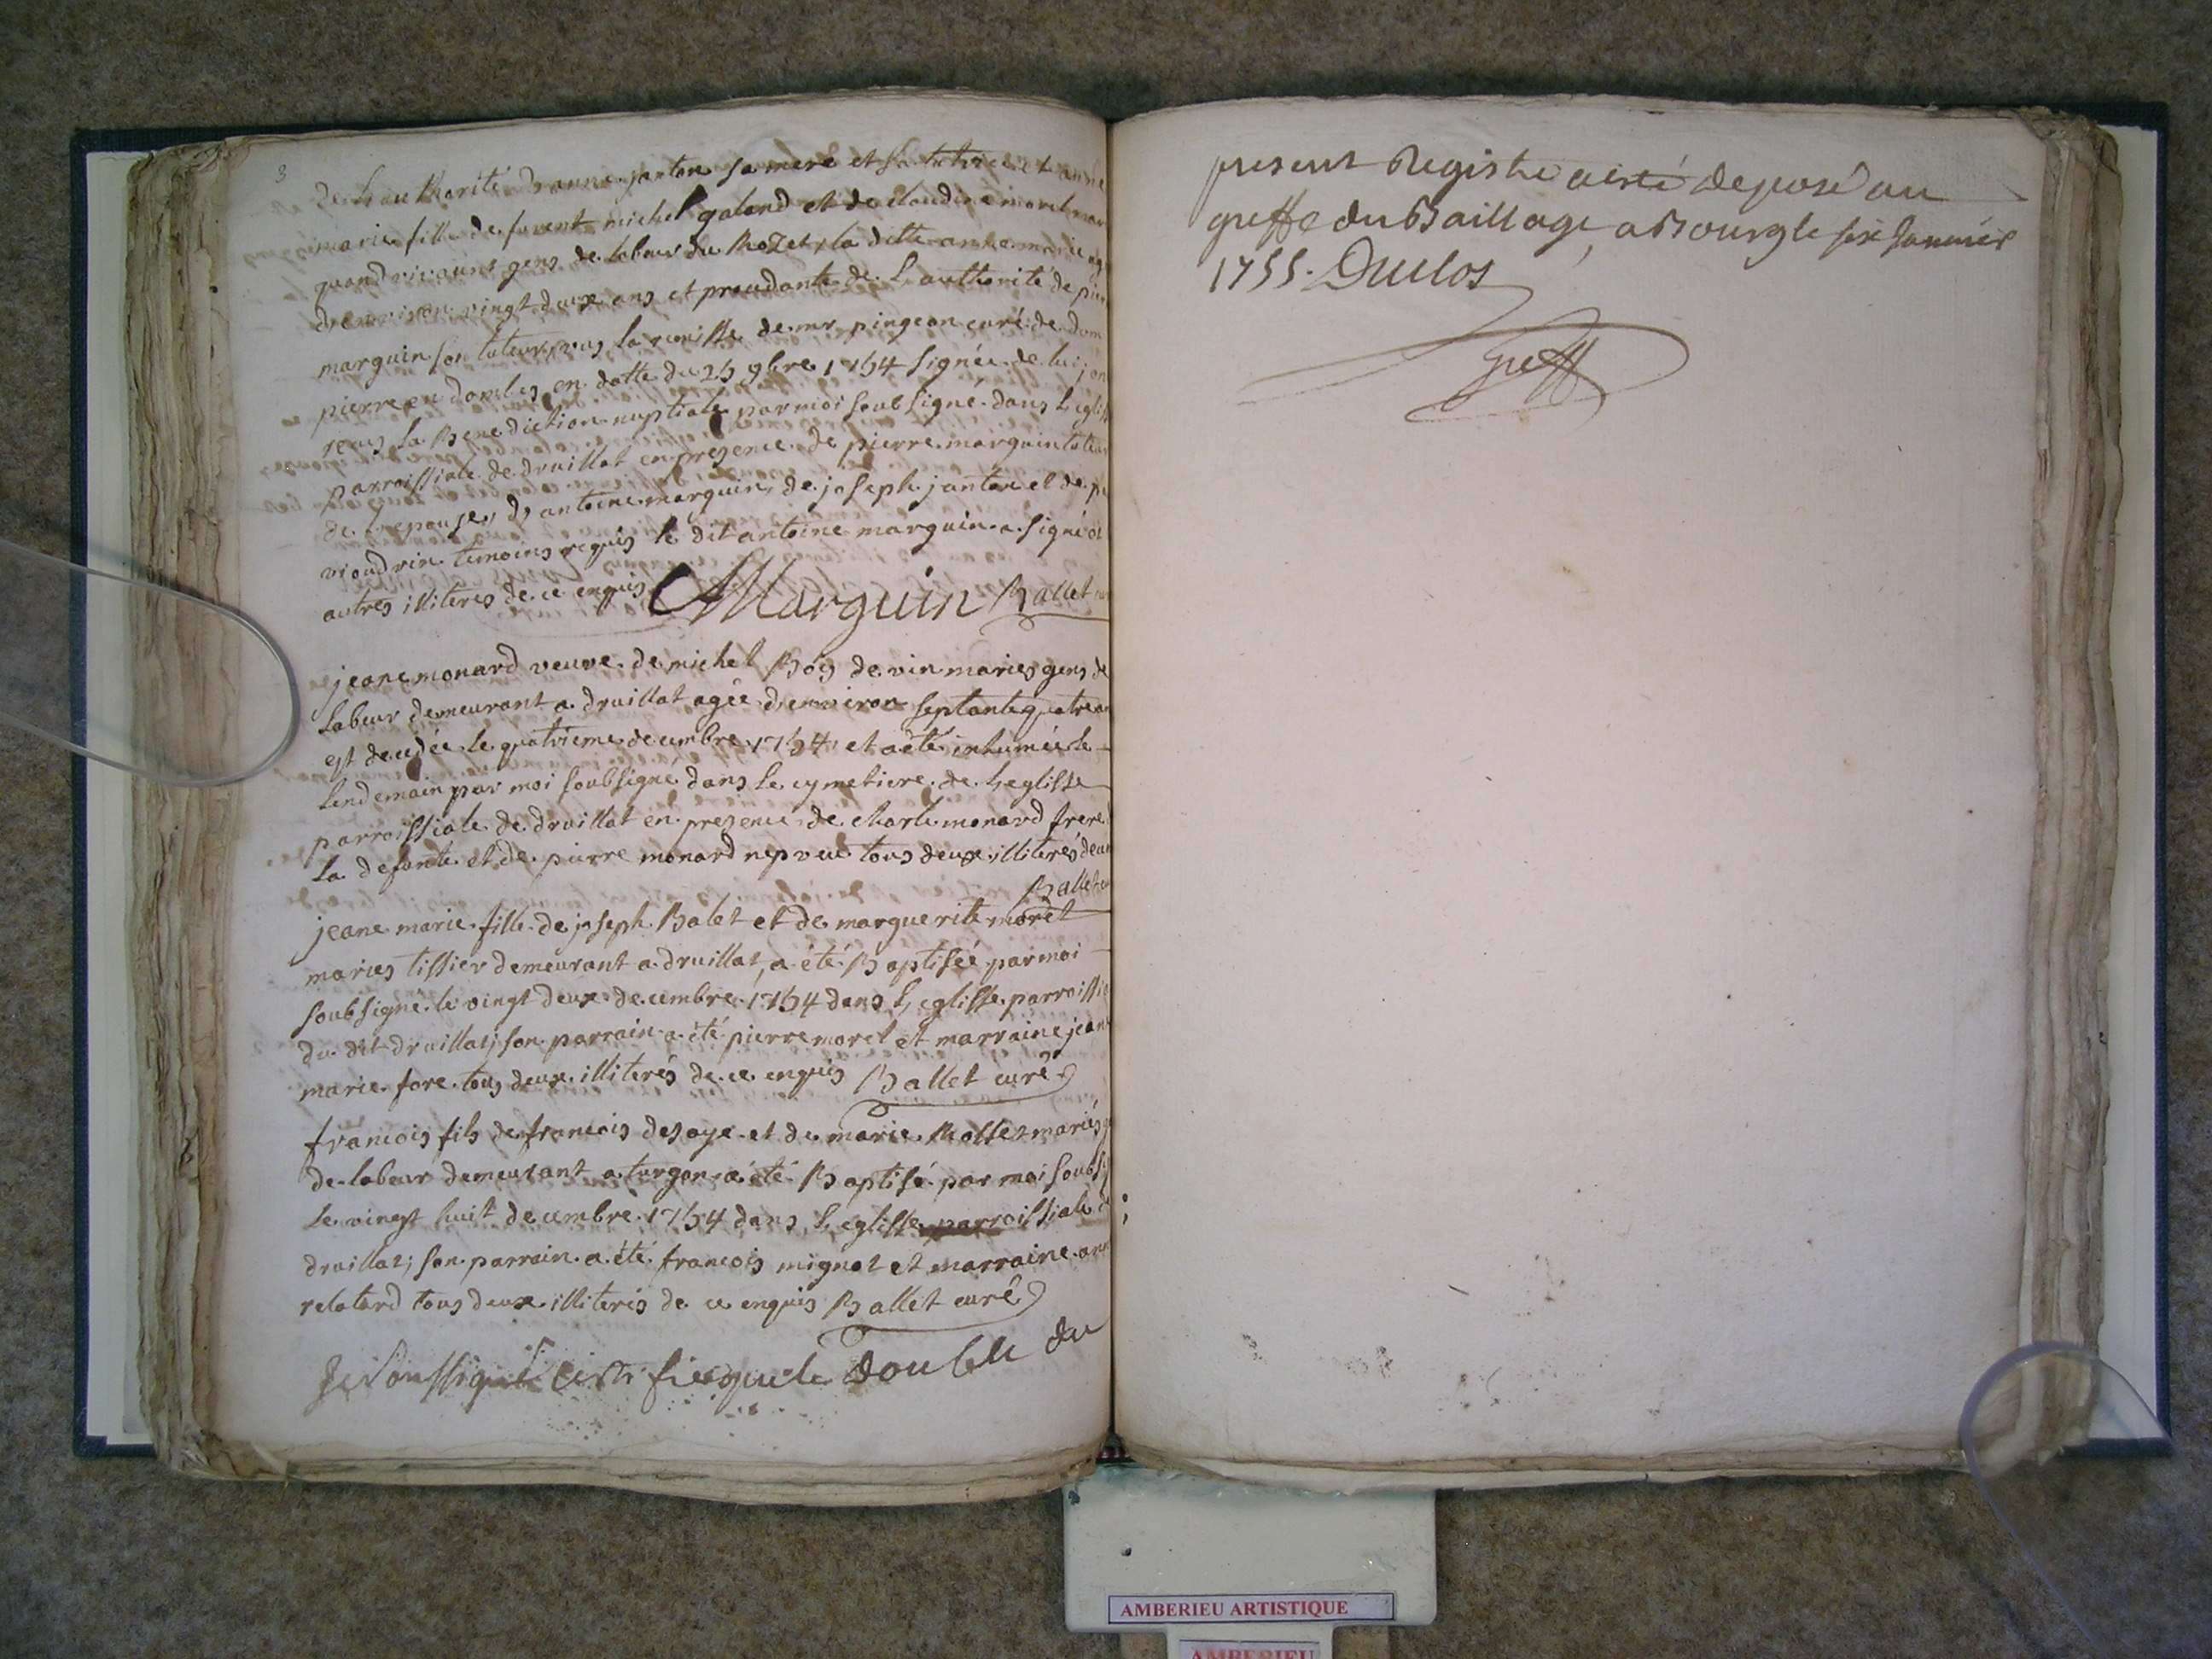 3
de L authorité d anne janton sa mere et sa tutrice et anne
marie fille de furent michel galand et de claudine morel mar
quand vivaint gens de labeur du Rozet, la ditte anne marie ag
d environ vingt deux ans et proudante de L authorité de pier
marguin son tuteur, vus la remisse de mr pingeon curé de dom
pierre en dombes en datte du 25 9bre 1754 signée de lui, on
reçus la Benediction nuptiale par moi soubsigné dans L eglis
parroissiale de druillat en presence de pierre marguin tuteu
de L epouse, d antoine marguin, de joseph janton et de
vioudrin temoins requis le dit antoine marguin a signé
autres illiteres de ce enquis AMarguin Ballet
jeane monard veuve de michel Bós de vin maries gens de
labeur demeurant a druillat agée d environ septante quatre
est decedée le quatrieme decembre 1754 et a été inhumée le
lendemain par moi soubsigné dans Le cymetiere de L eglisse
parroissiale de druillat en presence de charle monard frere
La defunte et de pierre monard nepveu tous deux illiterés de
Ballet
jeane marie fille de joseph Balet et de marguerite morel
maries tissier demeurant a druillat, a été Baptisée par moi
soubsigné le vingt deux decembre 1754 dans L eglisse parroissi
du dit druillat; son parrain a été pierre morel et marraine jean
marie fore tous deux illiterés de ce enquis Ballet curé
francois fils de francois desaye et de marie Rosset mariés
de labeur demeurant a turgon a été Baptisé par moi soubsi
Le vingt huit decembre 1754 dans L eglisse parroissiale d
druillat; son parrain a été francois mignot et marraine ann
relatard tous deux illiteris de ce enquis Ballet curé
Je Soussigné Certifie que le double du
present Registre a esté deposé au
greffe du Baillage, a Bourg le six Janvier
1755. Duclos
Greff
AMBERIEU ARTISTIQUE
AMBERIEU